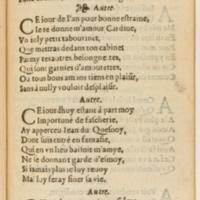 Autre.
CE iour de l'an pour bonne estraine,
Ie te donne m'amour Cardine,
Vn ioly petit tabourinet,
Que mettras dedans ton cabinet
Parmy tes autres besongnettes,
Qui sont garnies d'amourettes.
Ou tous bons amans tiens en plaisir,
Sans à nully vouloir desplaisir.
Autre.
CE iour d'huy estant à part moy
Importuné de fascherie,
Ay apperceu Iean du Quesnoy,
Dont suis entré en fantasie,
Qui en vn lieu bastoit m'amye,
Ne se donnant garde d'esmoy,
Si iamais plus ie luy renoy
Ma luy feray finer sa vie.
Autre.